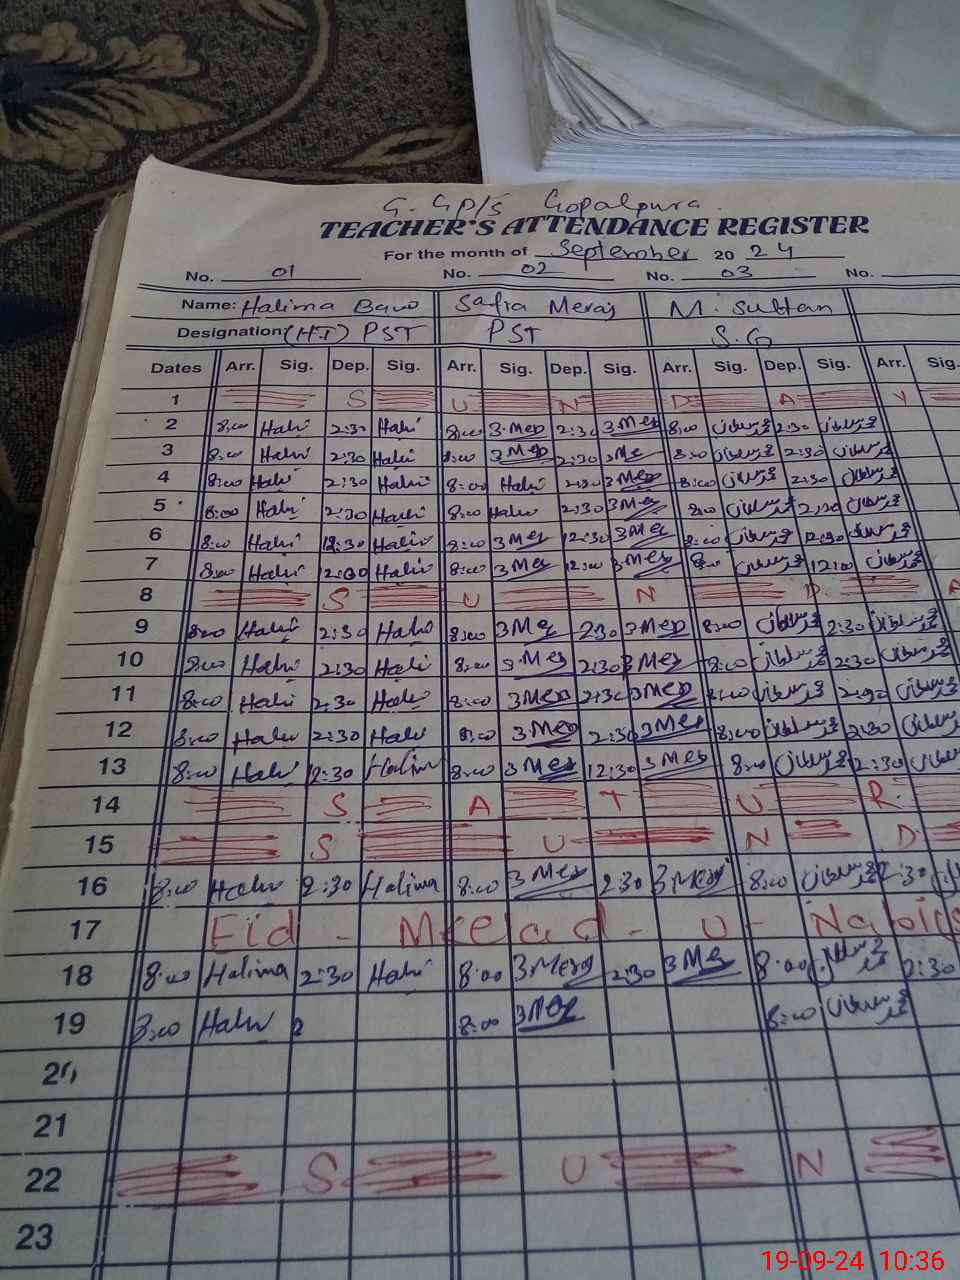 G. GP/S Gopalpura.
TEACHER'S ATTENDANCE REGISTER
For the month of September 2024
No. 01 No. 02 No. 03 No.
Name: Halima Bano Safia Meraj M. Sultan
Designation (H.T) PST PST S.G
Dates Arr. Sig. Dep. Sig. Arr. Sig. Dep. Sig. Arr. Sig. Dep. Sig. Arr. Sig.
1 S U N D A Y
2 8:00 Hali 2:30 Hali 8:00 3 Mer 2:30 3 Mer 8:00 محمد سلطان 2:30 محمد سلطان
3 8:00 Hali 2:30 Hali 8:00 3 Mer 2:30 3 Me 8:00 محمد سلطان 2:30 محمد سلطان
4 8:00 Hali 2:30 Hali 8:00 Hali 2:30 3 Mer 8:00 محمد سلطان 2:30 محمد سلطان
5 8:00 Hali 2:30 Hali 8:00 Hali 2:30 3 Mer 8:00 محمد سلطان 2:30 محمد سلطان
6 8:00 Hali 12:30 Hali 8:00 3 Mer 12:30 3 Mer 8:00 محمد سلطان 12:30 محمد سلطان
7 8:00 Hali 12:00 Hali 8:00 3 Mer 12:00 3 Mer 8:00 محمد سلطان 12:00 محمد سلطان
8 S U N D A
9 8:00 Hali 2:30 Hali 8:00 3 Mer 2:30 3 Mer 8:00 محمد سلطان 2:30 محمد سلطان
10 8:00 Hali 2:30 Hali 8:00 3 Mer 2:30 3 Mer 8:00 محمد سلطان 2:30 محمد سلطان
11 8:00 Hali 2:30 Hali 8:00 3 Mer 2:30 3 Mer 8:00 محمد سلطان 2:30 محمد سلطان
12 8:00 Hali 2:30 Hali 8:00 3 Mer 2:30 3 Mer 8:00 محمد سلطان 2:30 محمد سلطان
13 8:00 Hali 12:30 Halim 8:00 3 Mer 12:30 3 Mer 8:00 محمد سلطان 2:30 محمد سلطان
14 S A T U R
15 S U N D
16 8:00 Hali 2:30 Halima 8:00 3 Mer 2:30 3 Meraj 8:00 محمد سلطان 2:30
17 Eid - Meelad - U - Nabi
18 8:00 Halima 2:30 Hali 8:00 3 Meraj 2:30 3 Mer 8:00 محمد سلطان 2:30
19 8:00 Hali 2 8:00 3 Mer 8:00 محمد سلطان
20
21
22 S U N
23
19-09-24 10:36